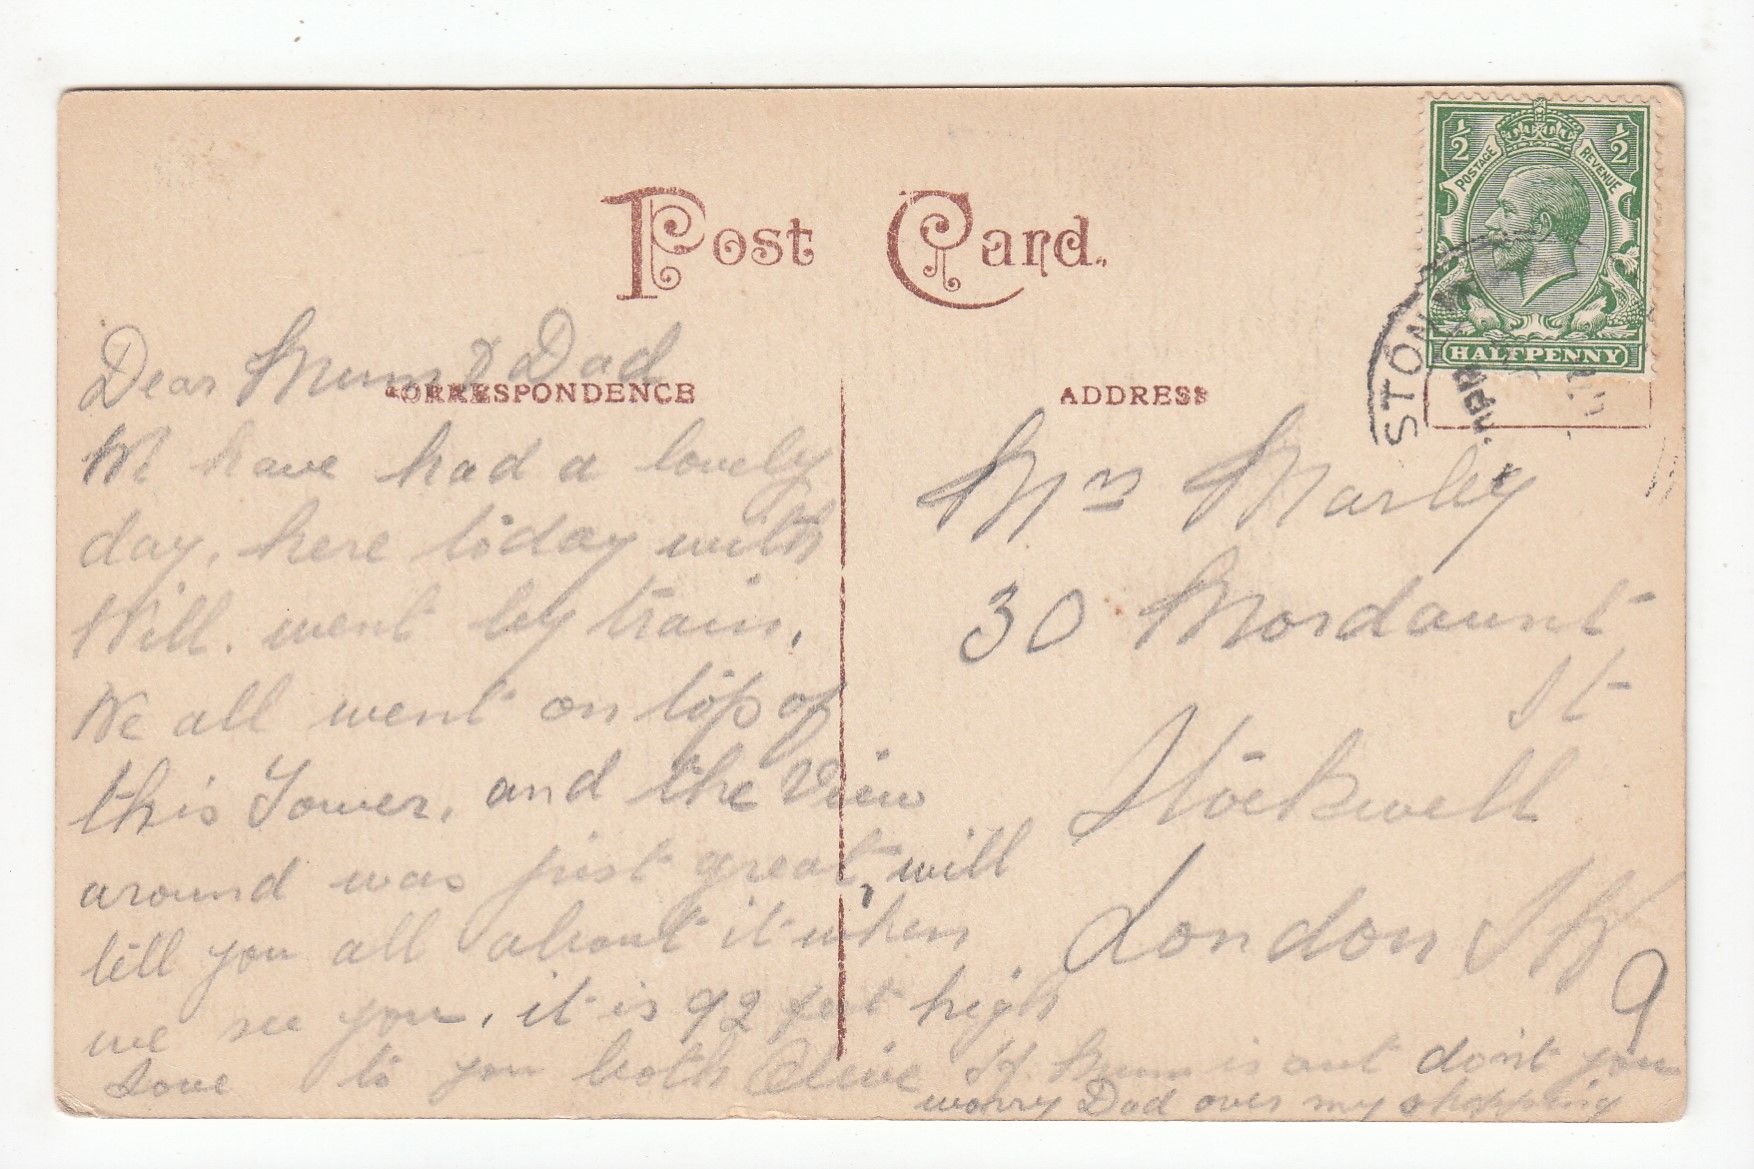 Post Card.
CORRESPONDENCE
ADDRESS
½ ½
POSTAGE REVENUE
HALFPENNY
STON
Dear Mum & Dad
We have had a lovely
day, here today with
Will. went by train,
We all went on top of
this Tower, and the View
around was just great, will
tell you all about it when
we see you, it is 92 feet high
Love to you both Olive
If Mum is out don't you
worry Dad over my shopping
Mrs Marley
30 Mordaunt
St
Stockwell
London SW
9